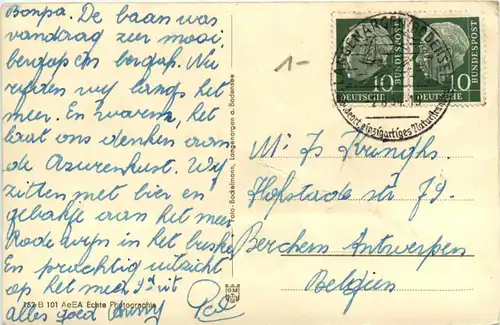 Bonpa. De baan was
vandaag zeer mooi
bergop en bergaf. Nu
rijden wij langs het
meer. En warm, het
laat ons denken aan
de Azurenkust. Wij
zitten met bier en
gebakje aan het meer
Rode wijn in het
En prachtig uitzicht
op het meer
alles goed
152 B 101 AeEA Echte Photographie
Foto-Bockelmann, Langenargen a. Bodensee
1-
LANGENARGEN (BODENSEE)
10
DEUTSCHE
BUNDESPOST
10
DEUTSCHE
BUNDESPOST
Mr Js
Hofstade str 79.
Berchem Antwerpen
Belgien